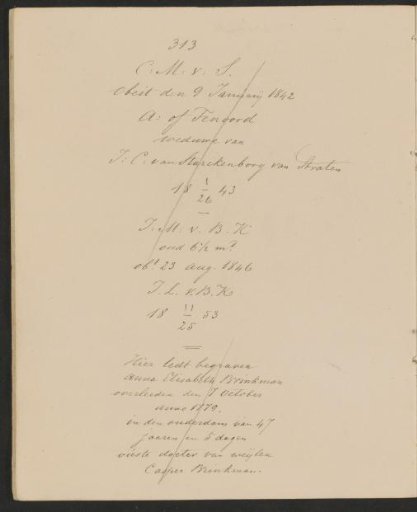 313
C: M. v. S.
Obiit den 9 Januarij 1842
A: of Tengord
weduwe van
J: C. van Starckenborg van Straten
18 1/26 43
J: M: v. B. K
oud 6 1/2 md
obt 23 aug. 1846
J. L. v. B. K
18 11/25 53
Hier ledt begraven
Anna Elisabeth Brinkman
overleden den 7 October
anno 1779.
in den ouderdom van 47
jaaren en 8 dagen
oudste dogter van weijlen
Casper Brinkman.